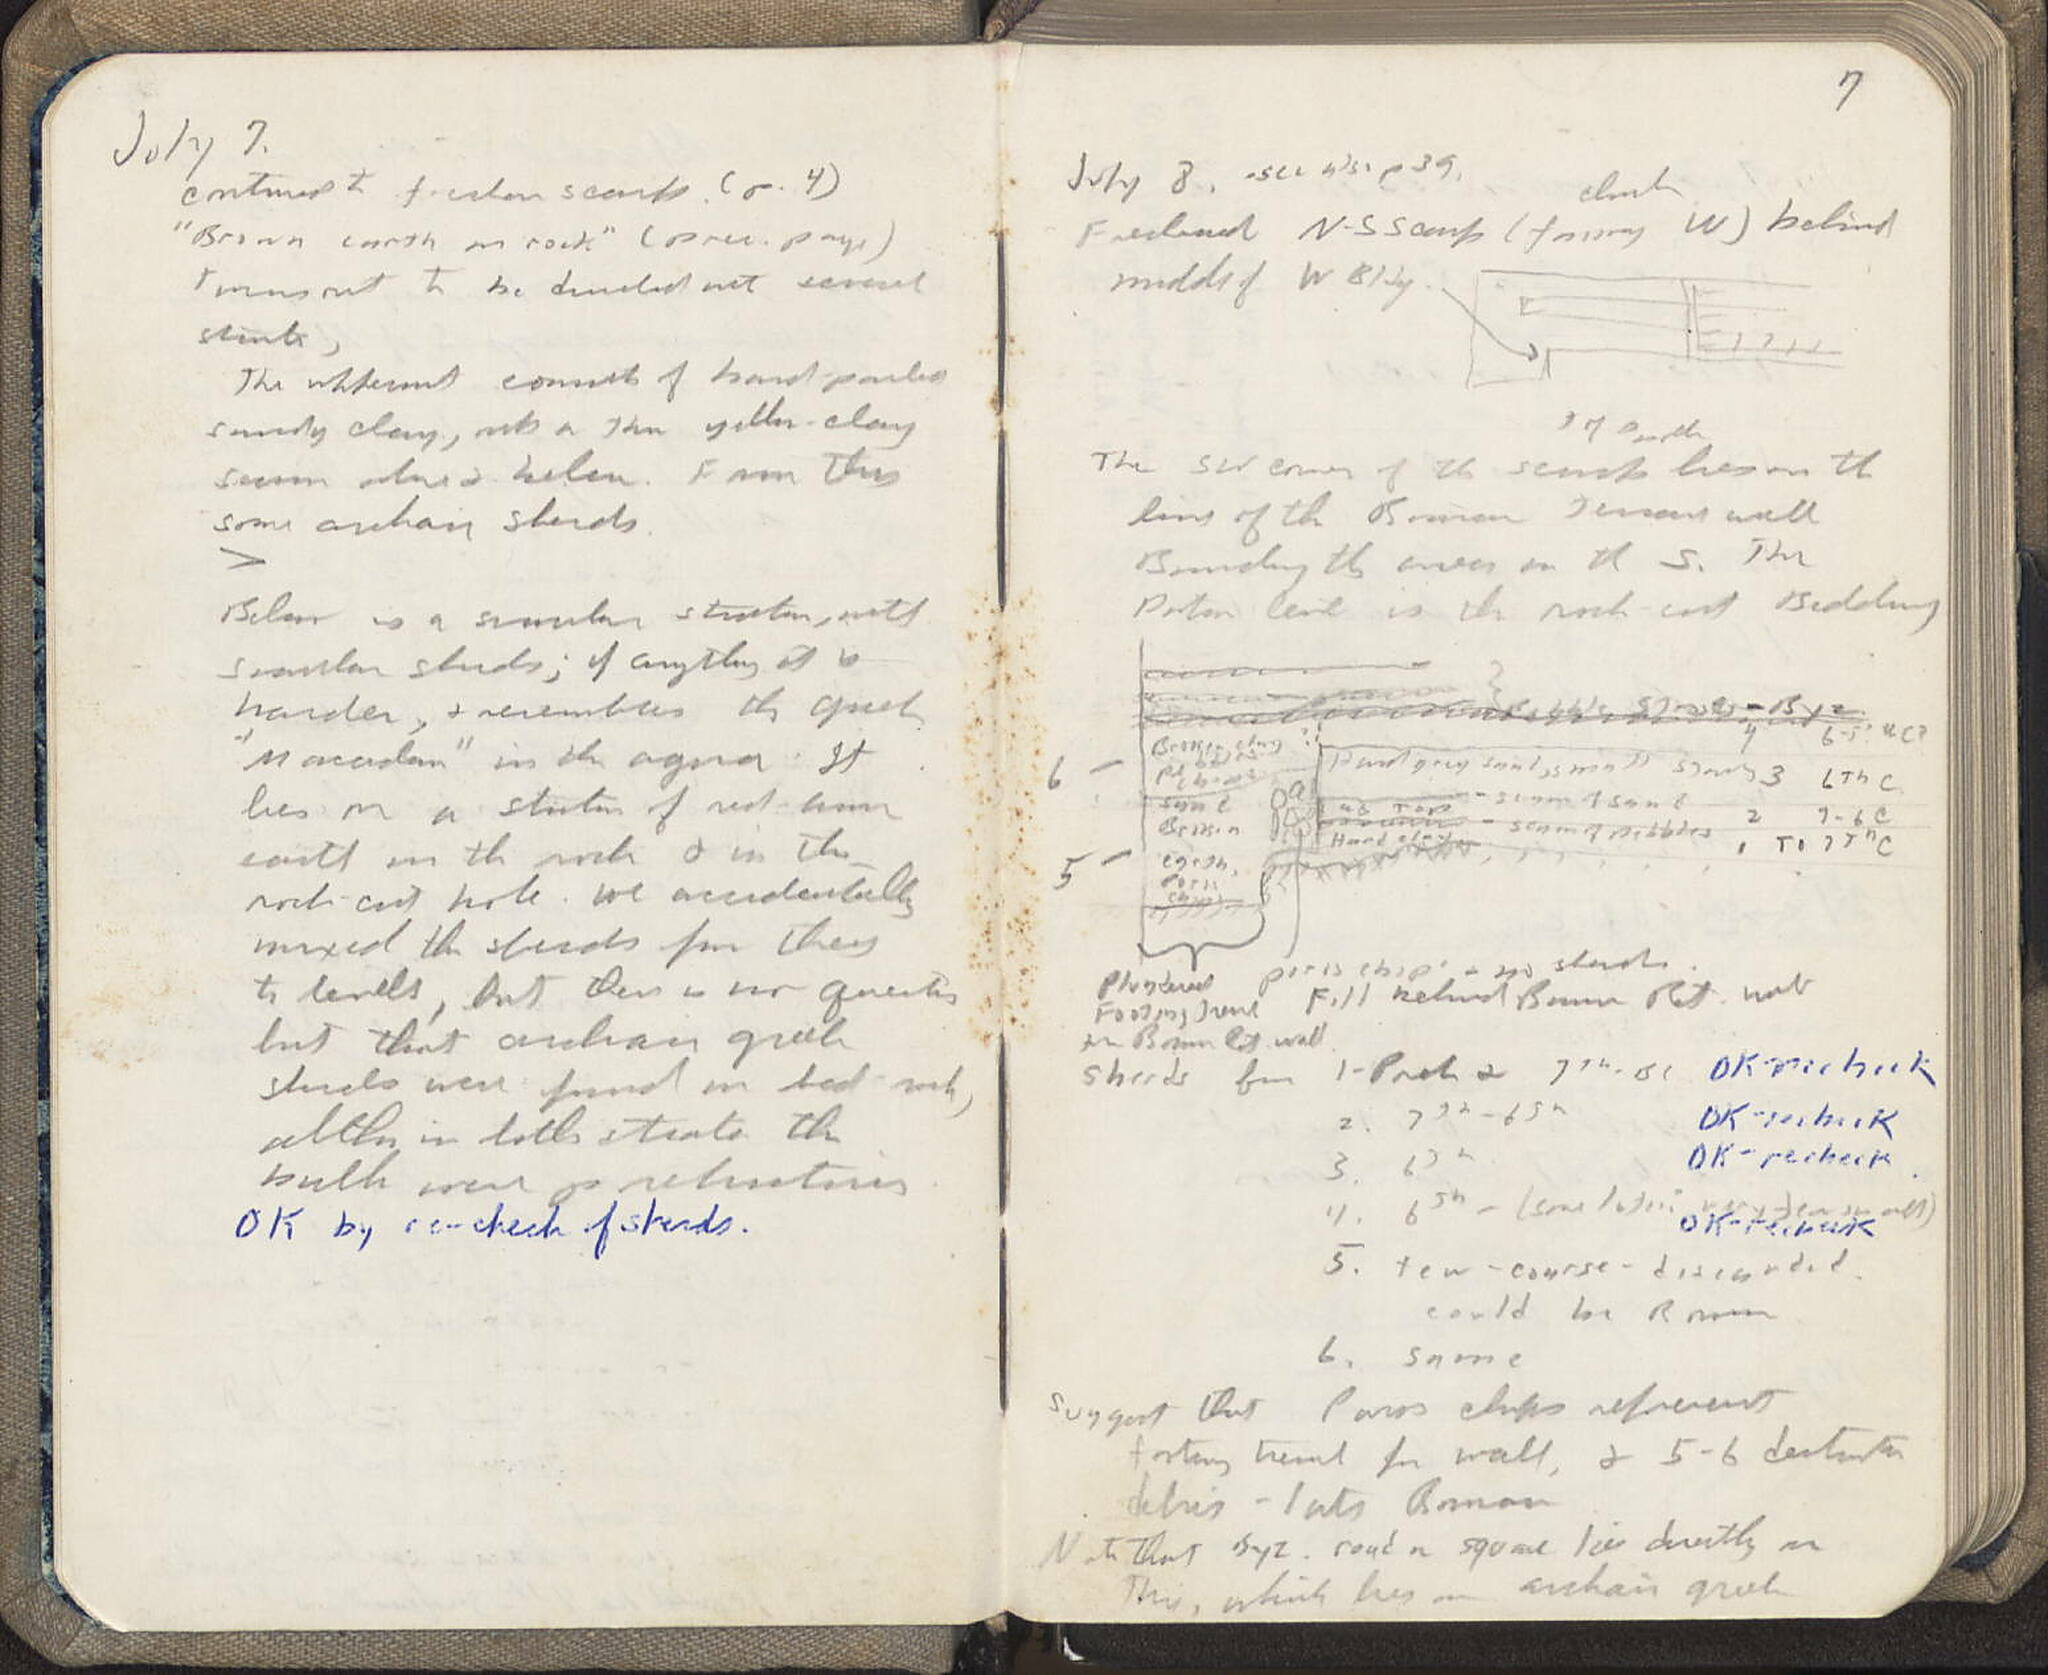 July 7.
continued to freshen scarp. (p. 4)
"Brown earth on rock" (prec. page)
turns out to be divided into several
strata,
The uppermost consists of hard-packed
sandy clay, with a thin yellow-clay
seam above & below. From this
some archaic sherds.
>
Below is a similar stratum, with
similar sherds; if anything it is
harder, & resembles the greek
"Macadam" in the agora. It
lies on a stratum of red-brown
earth on the rock & in the
rock-cut hole. We accidentally
mixed the sherds from these
two levels, but there is no question
but that archaic greek
sherds were found on bed-rock,
altho in both strata the
bulk were prehistoric
OK by re-check of sherds.
7
July 8. see also p 39.
check
Freshened N-S scarp (facing W) behind
middle of W Bldg.
The SW corner of the scarp lies on the
line of the Roman Terrace wall
Bounding the area on the S. The
Datum level is the rock-cut Bedding
pebbles Stones - Byz
4 6-5th C?
Broken clay
chips
Hard grey sand, small stones 3 6th C
6
sand
as top - seam of sand 2 7-6 C
Broken
- seam of pebbles
Hard clay 1 To 7th C
5
earth,
poros
chips
poros chips - no sherds.
Plundered
Footing Trench Fill behind Roman Ret. wall
for Roman Ret. wall
Sherds from 1-Preh & 7th BC OK-recheck
2. 7th-6th OK-recheck
3. 6th OK-recheck
4. 6th - (some later? very few in all)
OK-recheck
5. few - coarse - discarded.
could be Roman
6. same
Suggest that Poros chips represent
footing trench for wall, & 5-6 destruction
debris - late Roman
Note that Byz. road or square lies directly on
This, which lies on archaic greek